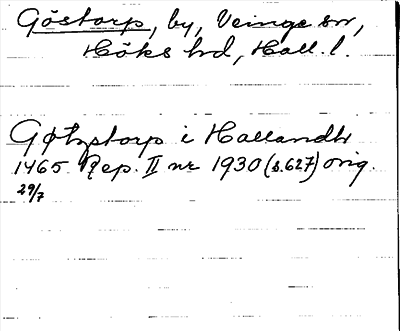 Göstorp, by, Veinge sn,
Höks hd, Hall. l.
Gøtzstorp i Hallandh
1465 Rep. II nr 1930 (s.627) orig.
29/7